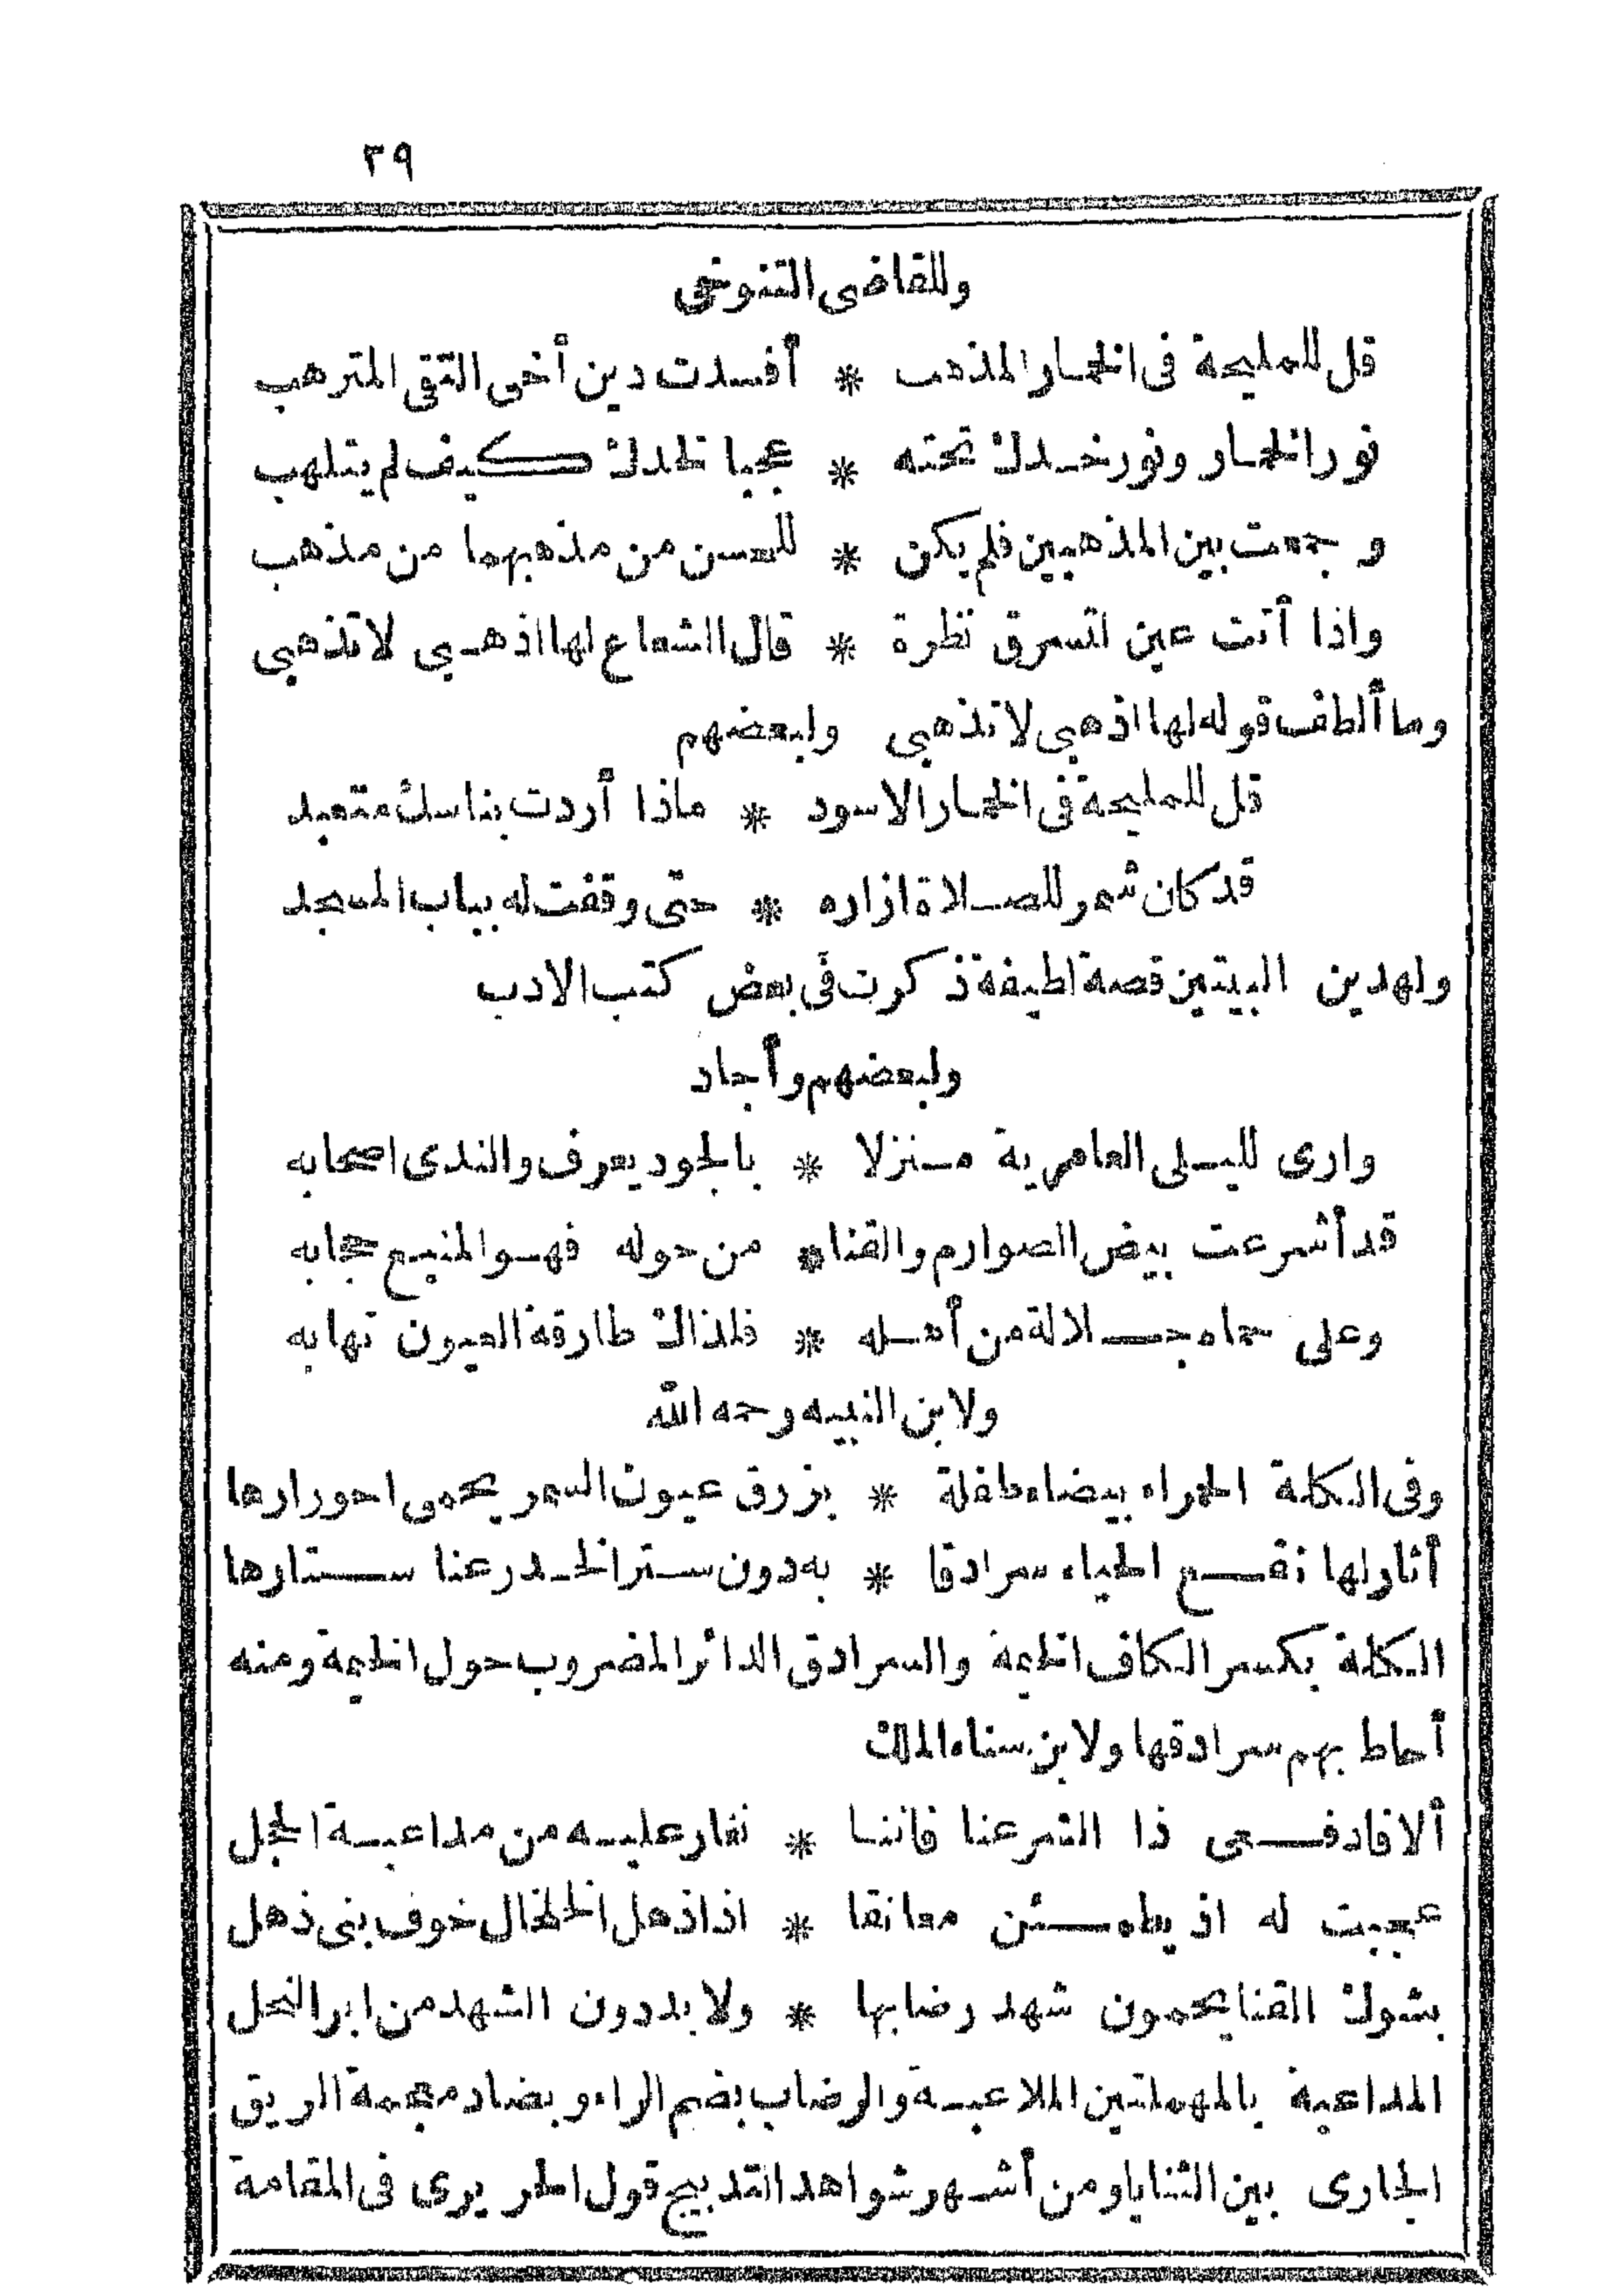 ٢٩
وللقاضى التنوخى
قل للمليحة فى الخمار المذهب * أفسدت دين أخى التقى المترهب
نور الخمار ونور خدك تحته * عجبا لخدك كيف لم يتلهب
وجمعت بين المذهبين فلم يكن * للحسن من مذهبهما من مذهب
واذا أتت عين لتسرق نظرة * قال الشعاع لها اذهبى لا تذهبى
وما ألطف قوله لها اذهبى لا تذهبى ولبعضهم
قل للمليحة فى الخمار الاسود * ماذا أردت بناسك متعبد
قد كان شمر للصلاة ازاره * حتى وقفت له بباب المسجد
ولهدين البيتين قصة لطيفة ذكرت فى بعض كتب الادب
ولبعضهم وأجاد
وارى لليلى العامرية منزلا * بالجود يعرف والندى اصحابه
قد أشرعت بيض الصوارم والقنا * من حوله فهو المنيع حجابه
وعلى حماه جلالة من أهله * فلذاك طارقة العيون تهابه
ولابن النبيه رحمه الله
وفى الكلة الحمراء بيضاء طفلة * بزرق عيون السمر يحمى احورارها
أثار لها نقع الحياء سرادقا * به دون ستر الخدر عنا ستارها
الكلة بكسر الكاف الخيمة والسرادق الدائر المضروب حول الخيمة ومنه
أحاط بهم سرادقها ولابن سناء الملك
ألا فادفعى ذا الشرعنا فاننا * نغار عليه من مداعبة الحجل
عجبت له اذ يطمئن معانقا * اذا ذهل الخلخال خوف بنى ذهل
بشوك القنا يحمون شهد رضابها * ولا بد دون الشهد من ابر النحل
المداعبة بالمهملتين الملاعبة والرضاب بضم الراء وبضاد معجمة الريق
الجارى بين الثنايا ومن أشهر شواهد التدبيج قول الحريرى فى المقامة